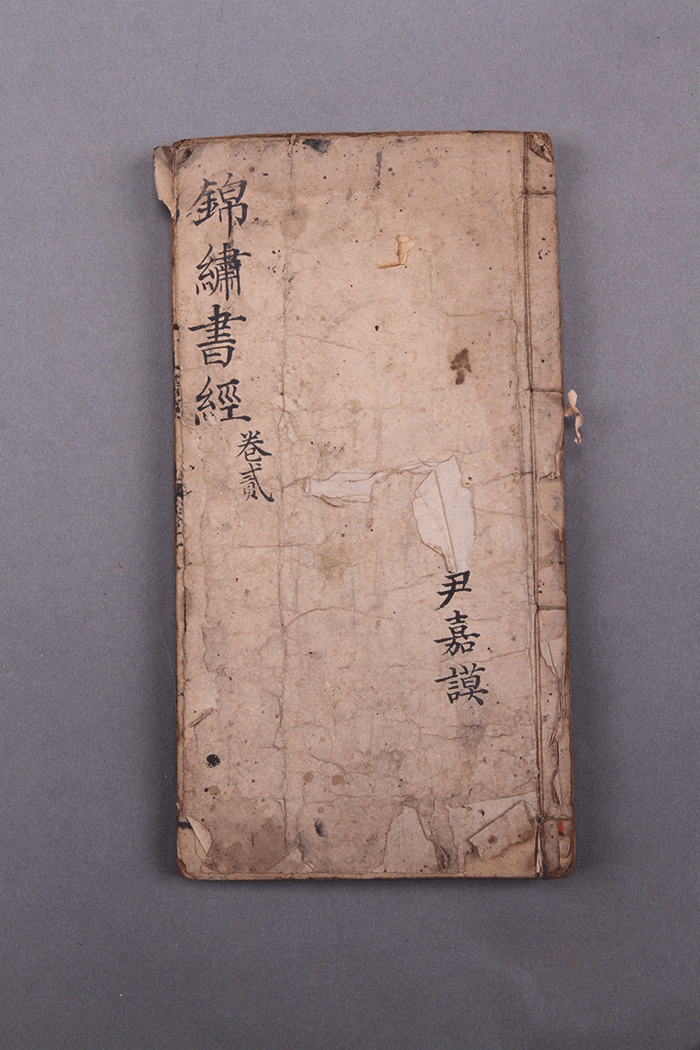 錦繡書經
卷貳
尹嘉謨